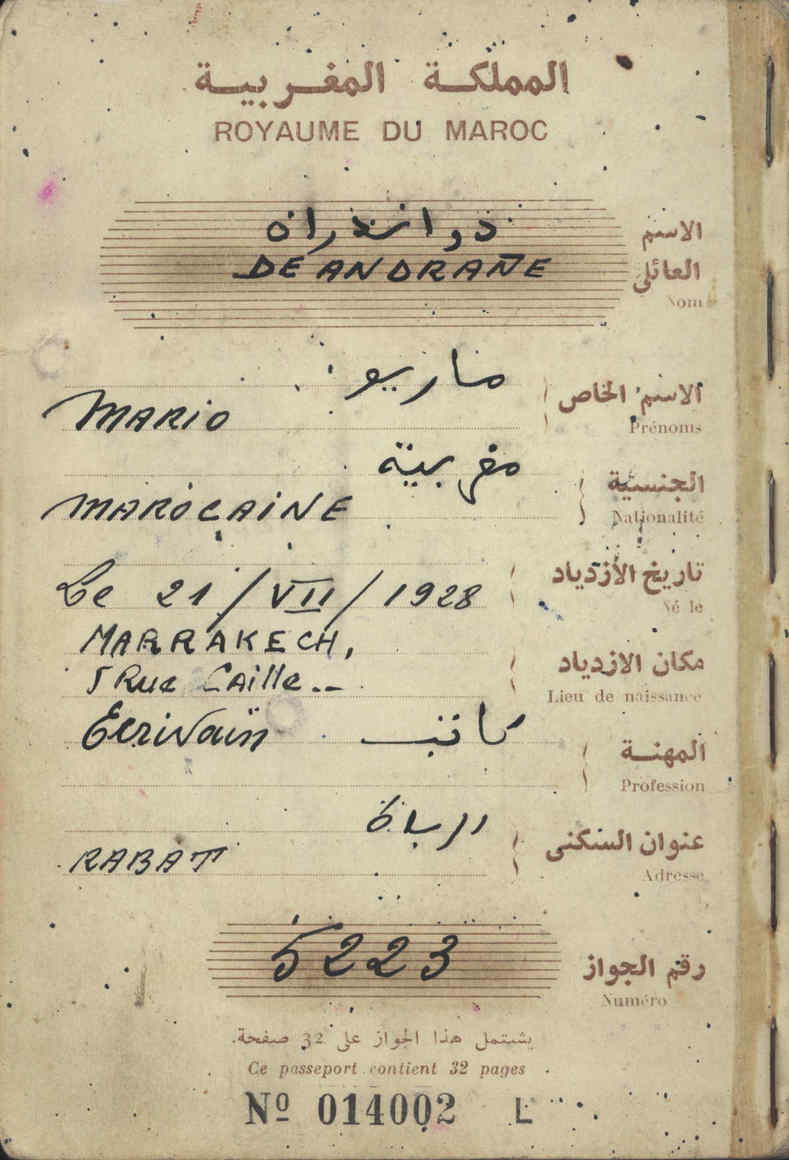 المملكة المغربية
ROYAUME DU MAROC
دواندرانه
الاسم
العائلي
DE ANDRAÑE
Nom
ماريو
الاسم الخاص
MARIO
Prénoms
مغربية
الجنسية
MAROCAINE
Nationalité
تاريخ الأزدياد
Le 21/VII/1928
Né le
MARRAKECH,
مكان الازدياد
5 Rue Caille.--
Lieu de naissance
Ecrivain
كاتب
المهنة
Profession
الرباط
عنوان السكنى
RABAT
Adresse
5223
رقم الجواز
Numéro
يشتمل هذا الجواز على 32 صفحة.
Ce passeport contient 32 pages
Nº 014002 L